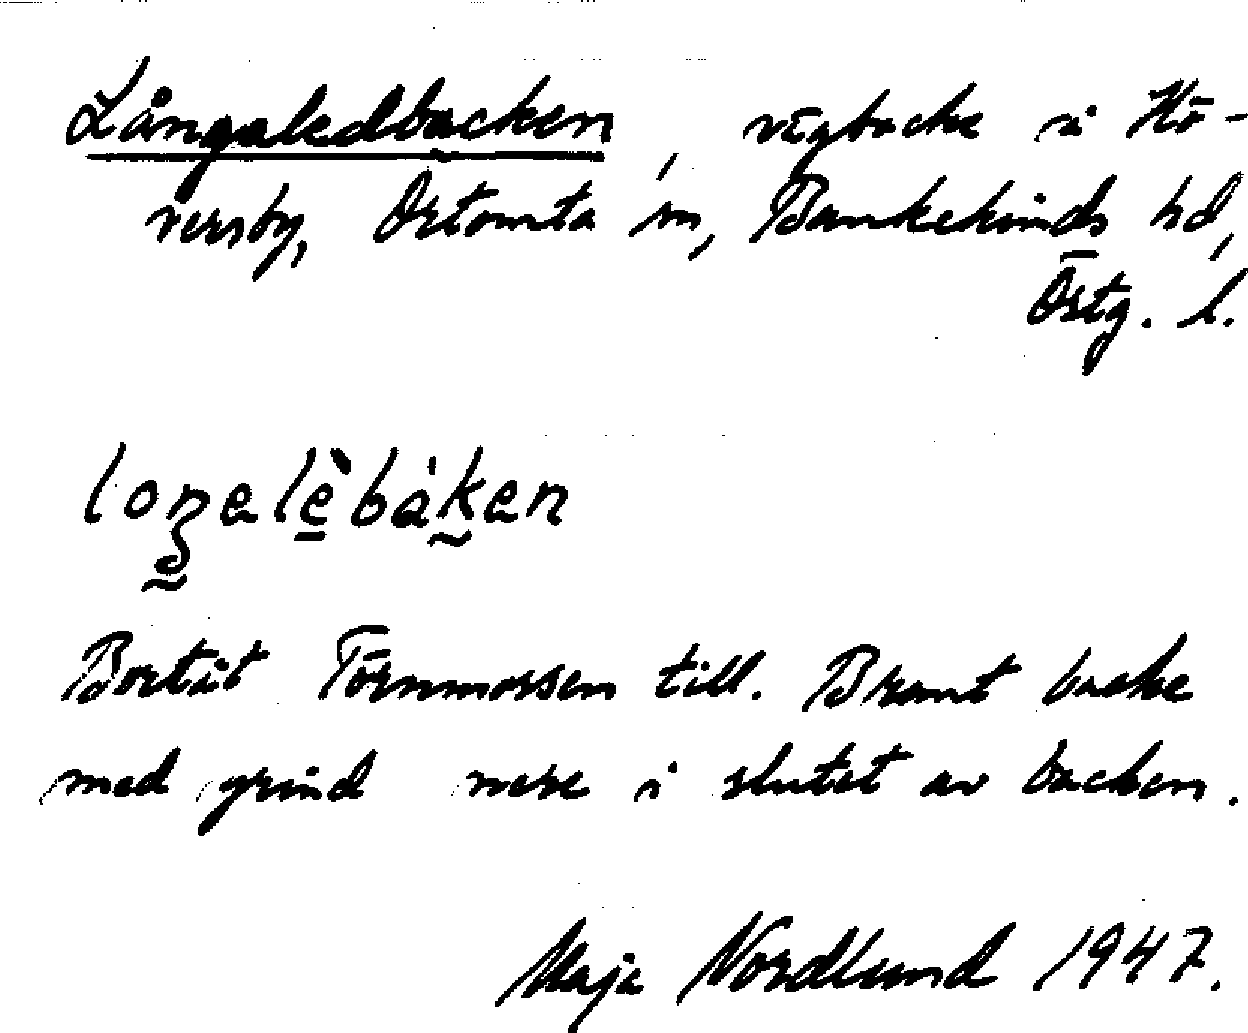 Långaledbacken, vägbacke i Hä-
versby, Örtomta sn, Bankekinds hd,
Östg. l.
loŋelèbáken
Bortåt Törnmossen till. Brant backe
med grind nere i slutet av backen.
Maja Nordlund 1947.